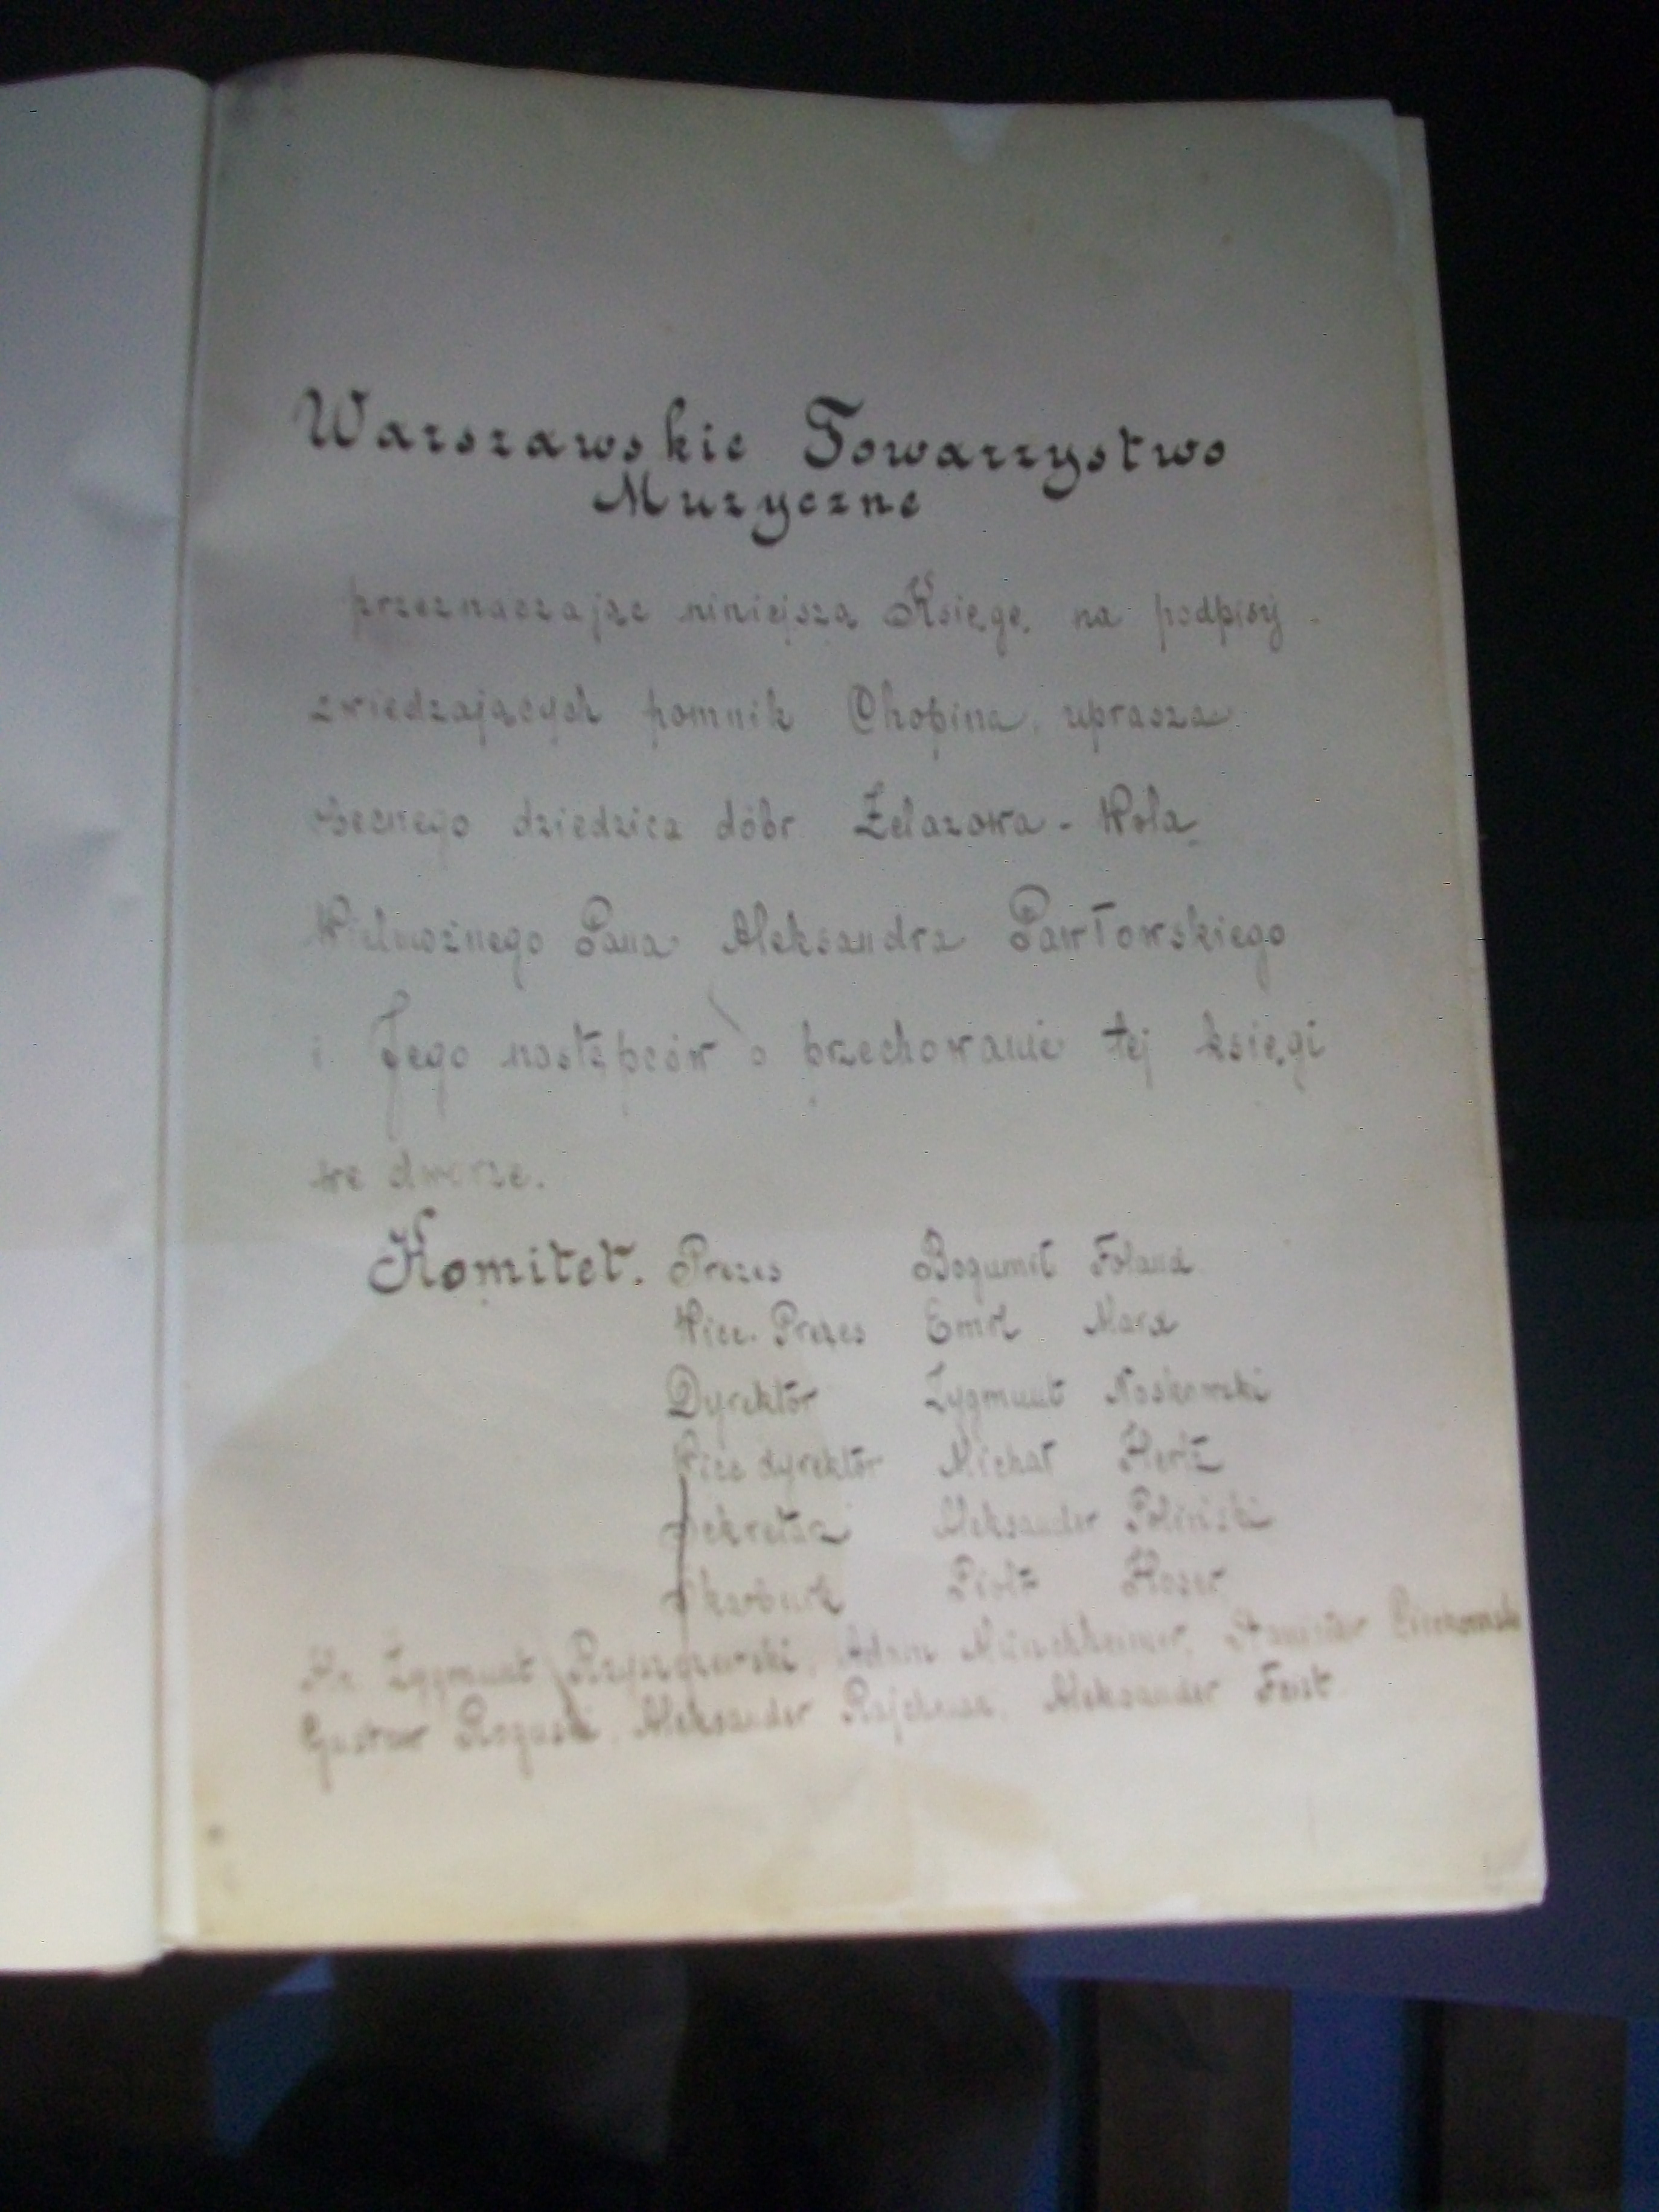 Warszawskie Towarzystwo
Muzyczne
przeznaczając niniejszą Księgę, na podpisy
zwiedzających pomnik Chopina, uprasza
obecnego dziedzica dóbr Żelazowa-Wola
Wielmożnego Pana Aleksandra Pawłowskiego
i Jego następców o przechowanie tej księgi
we dworze.
Komitet. Prezes Bogumił Foland
Wice-Prezes Emil Marx
Dyrektor Zygmunt Noskowski
Wice dyrektor Michał Hertz
Sekretarz Aleksander Poliński
Skarbnik Piotr Hoser
Hr. Zygmunt Ryszczewski, Adam Münchheimer, Stanisław
Gustaw Roguski, Aleksander Rajchman, Aleksander Feist